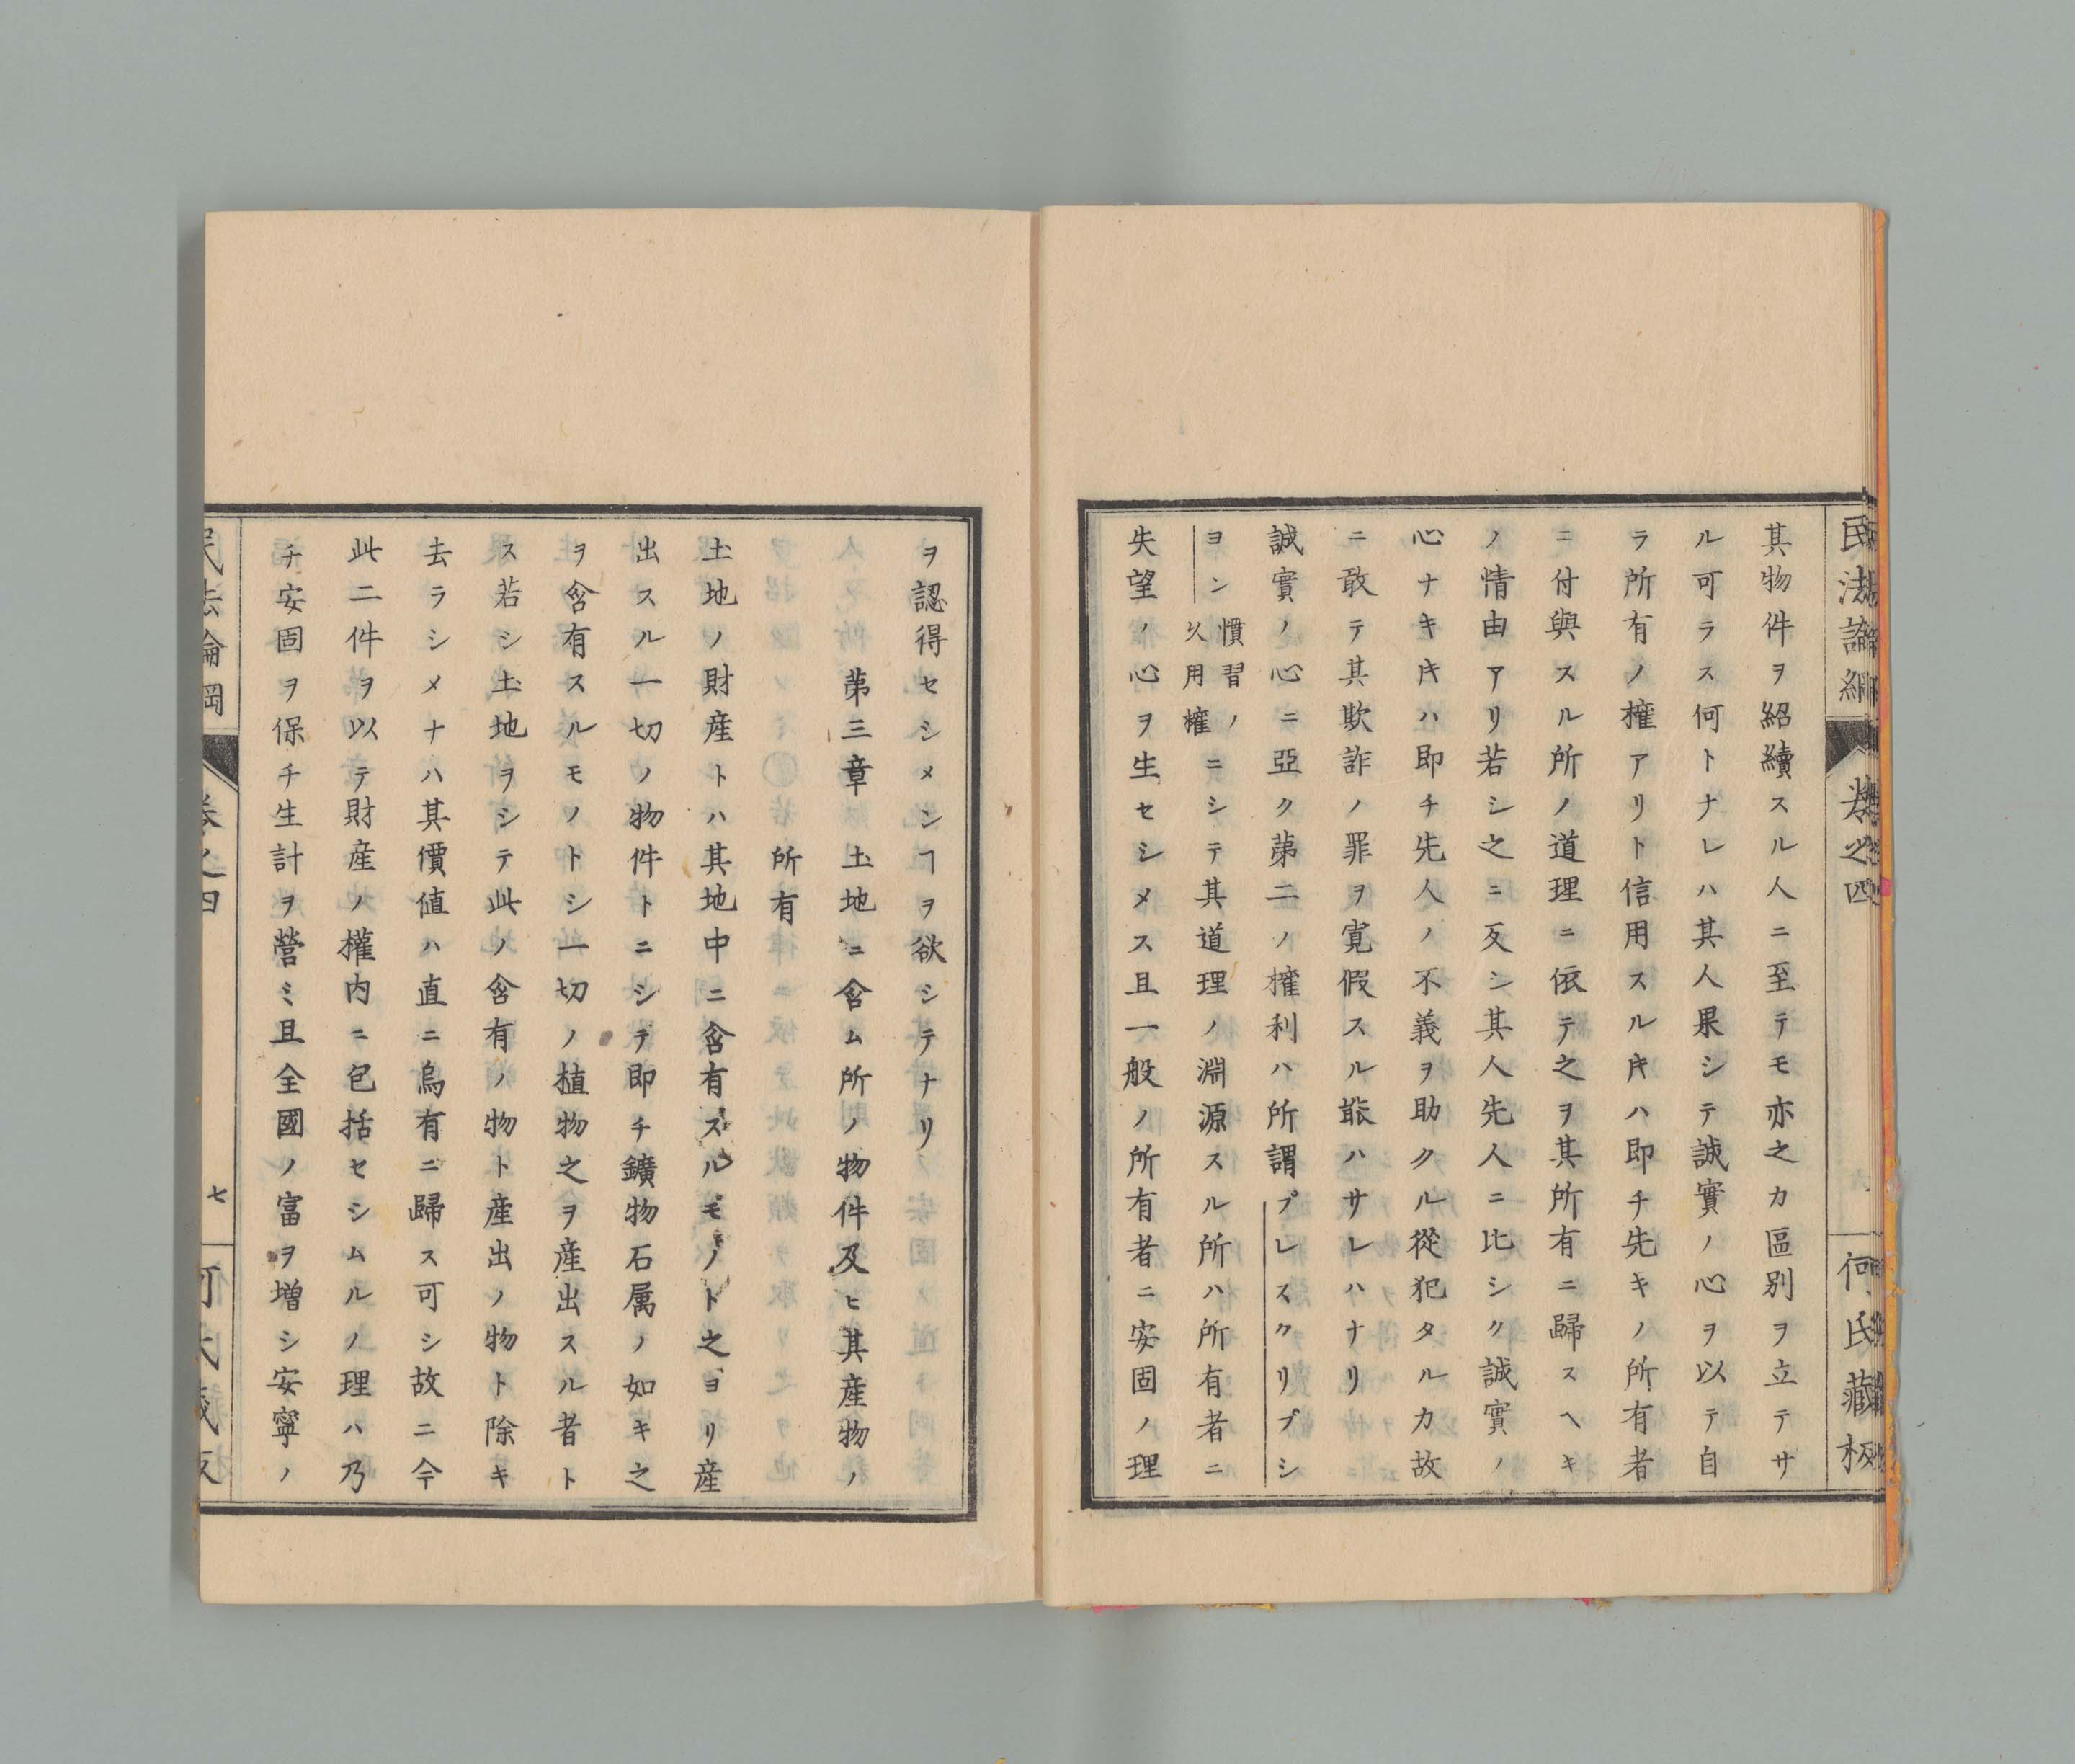 民法論綱
卷之四
何氏藏板
其物件ヲ紹續スル人ニ至テモ亦之カ區別ヲ立テサ
ル可ラス何トナレハ其人果シテ誠實ノ心ヲ以テ自
ラ所有ノ權アリト信用スルキハ即チ先キノ所有者
ニ付與スル所ノ道理ニ依テ之ヲ其所有ニ歸スヘキ
ノ情由アリ若シ之ニ反シ其人先人ニ比シク誠實ノ
心ナキキハ即チ先人ノ不義ヲ助クル從犯タルカ故
ニ敢テ其欺詐ノ罪ヲ寛假スル能ハサレハナリ
誠實ノ心ニ亞ク第二ノ權利ハ所謂プレスクリプシ
ヨン慣習ノ久用權ニシテ其道理ノ淵源スル所ハ所有者ニ
失望ノ心ヲ生セシメス且一般ノ所有者ニ安固ノ理
ヲ認得セシメンヿヲ欲シテナリ
第三章 土地ニ含ム所ノ物件及ヒ其産物ノ
所有
土地ノ財産トハ其地中ニ含有スルモノト之ヨリ産
出スル一切ノ物件トニシテ即チ鑛物石属ノ如キ之
ヲ含有スルモノトシ一切ノ植物之ヲ産出スル者ト
ス若シ土地ヲシテ此ノ含有ノ物ト産出ノ物ト除キ
去ラシメナハ其價値ハ直ニ烏有ニ歸ス可シ故ニ今
此二件ヲ以テ財産ノ權内ニ包括セシムルノ理ハ乃
チ安固ヲ保チ生計ヲ營ミ且全國ノ富ヲ増シ安寧ノ
民法論綱
卷之四
七
何氏藏板